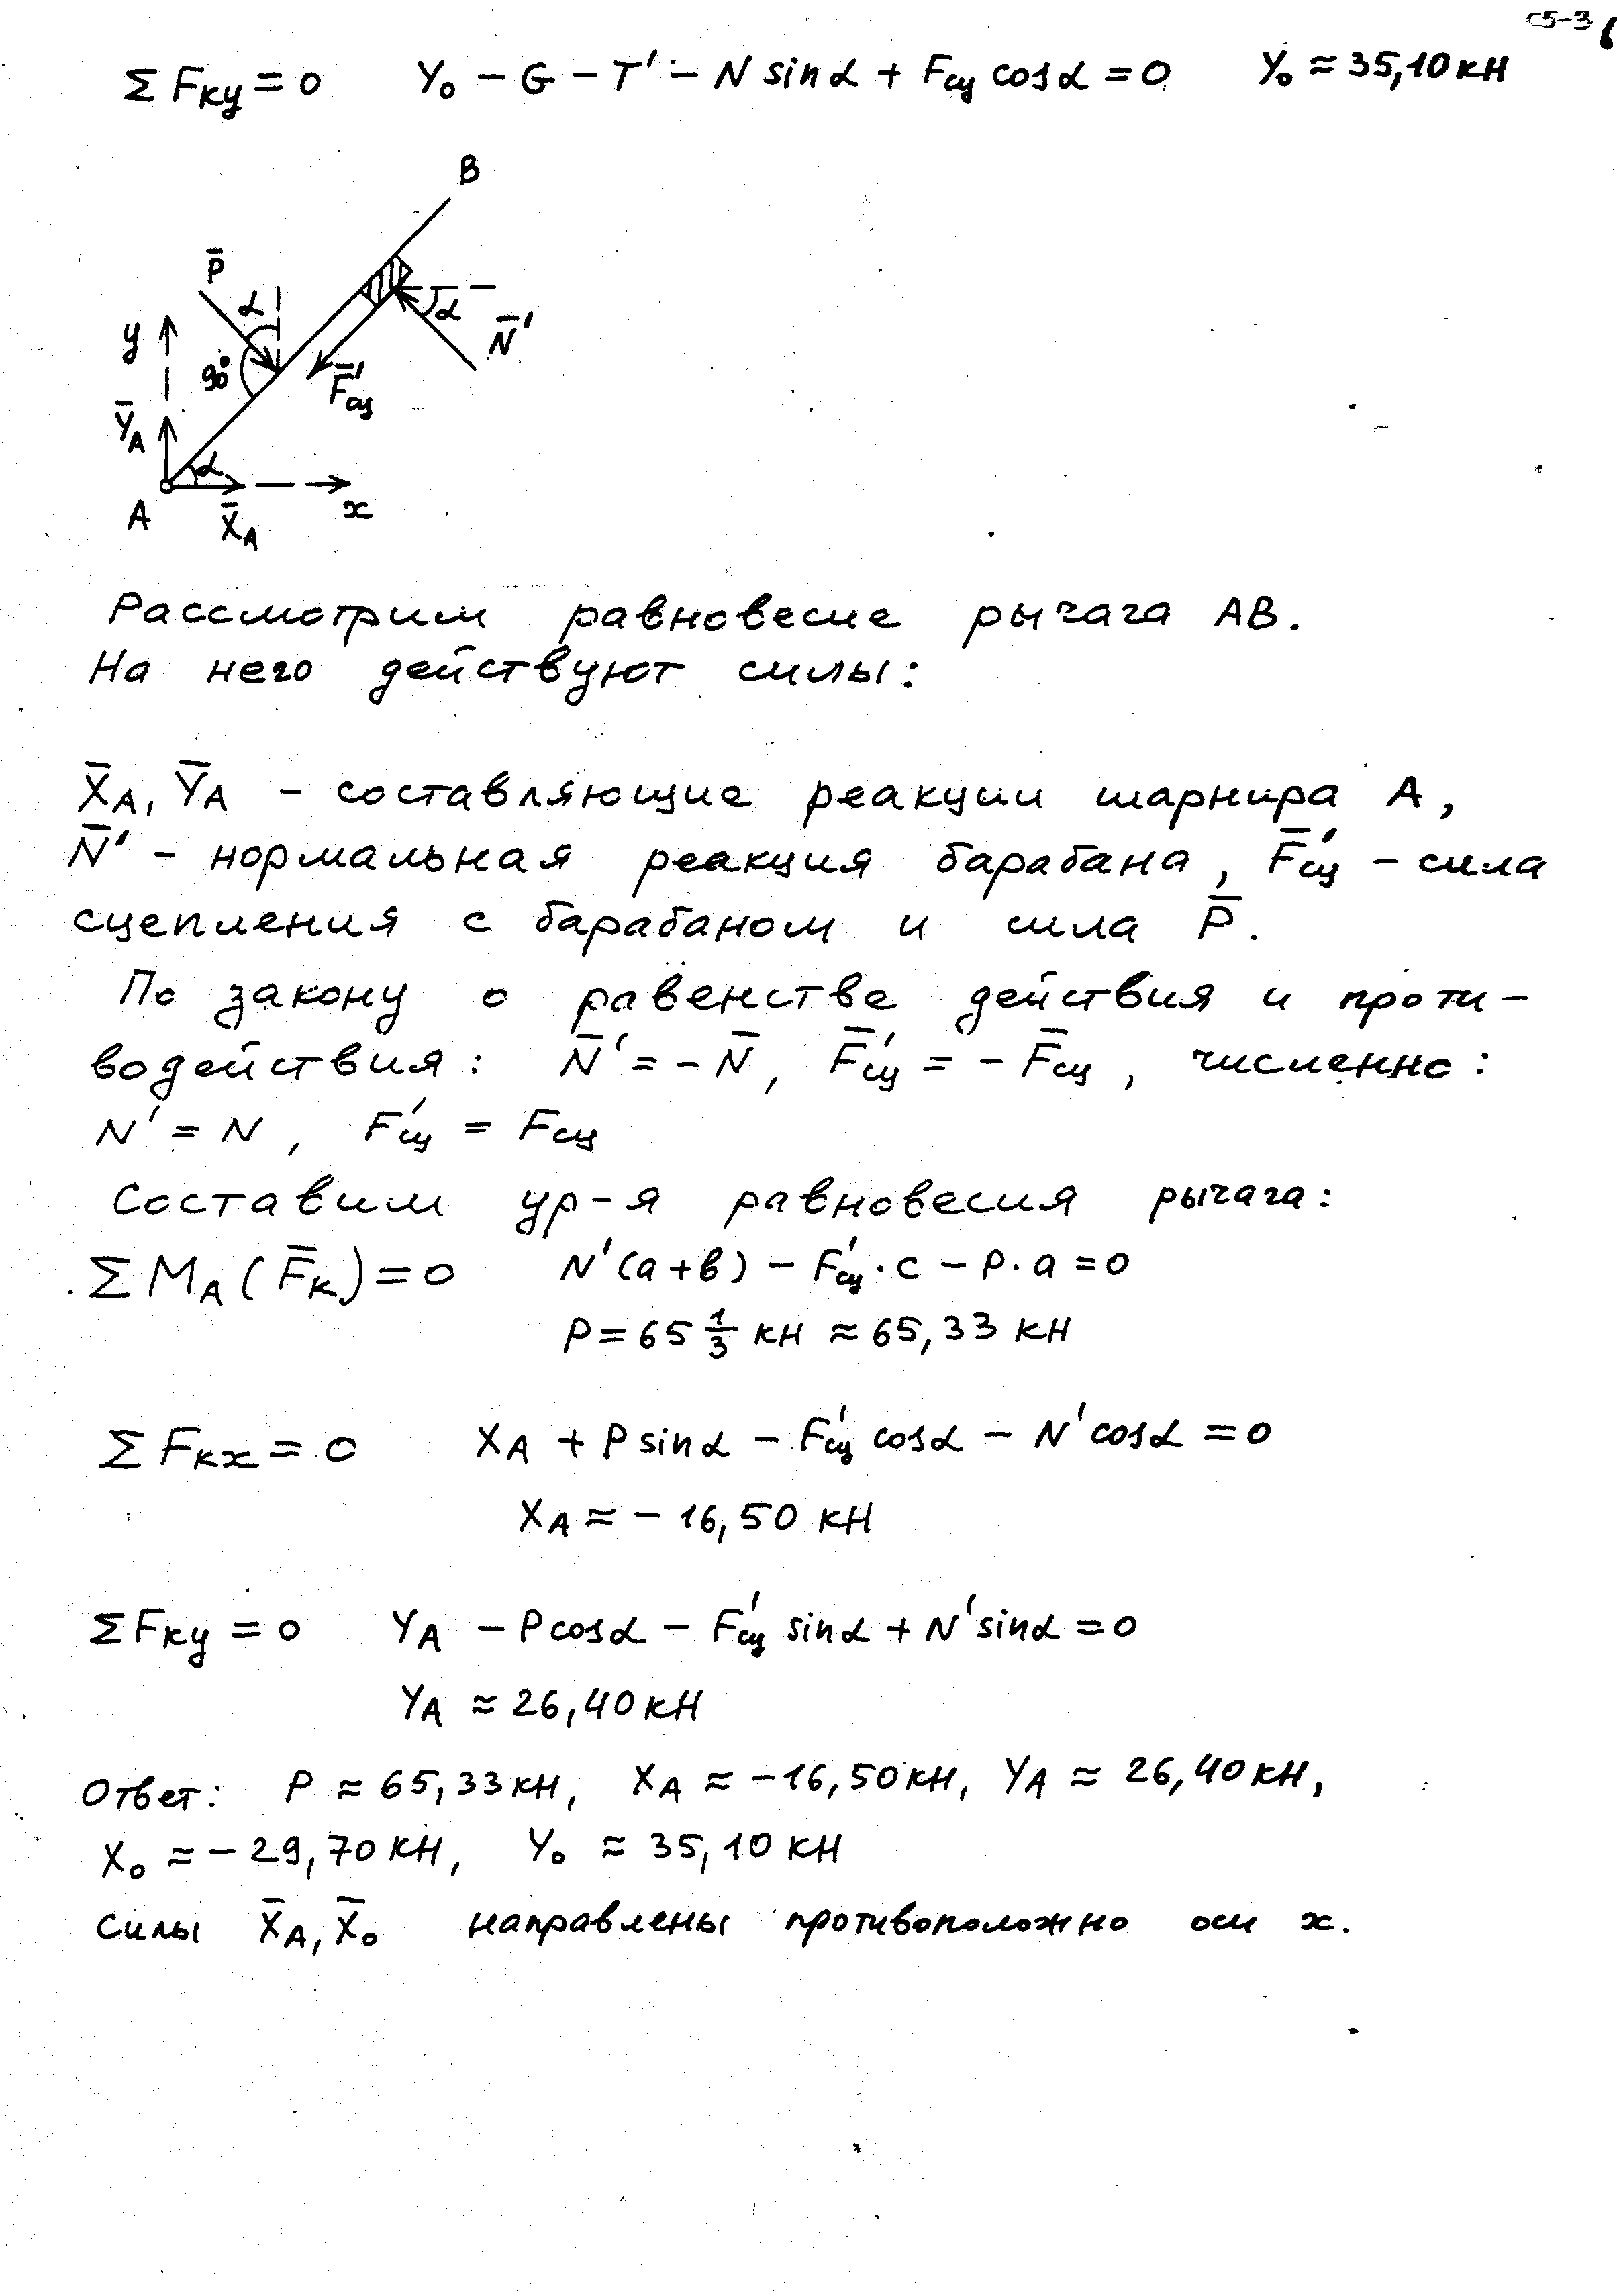 С5-3 6
Σ Fку = 0 Y₀ − G − T' − N sin α + Fсц cos α = 0 Y₀ ≈ 35,10 кН
B
P̄
α
α
N̄'
y
90°
F̄'сц
ȲA
α
A
X̄A
x
Рассмотрим равновесие рычага AB.
На него действуют силы:
X̄A, ȲA – составляющие реакции шарнира A,
N̄' – нормальная реакция барабана, F̄'сц – сила
сцепления с барабаном и сила P̄.
По закону о равенстве действия и проти-
водействия: N̄' = − N̄, F̄'сц = − F̄сц, численно:
N' = N, F'сц = Fсц
Составим ур-я равновесия рычага:
Σ MA (F̄к) = 0 N'(a+b) − F'сц · c − P · a = 0
P = 65 1/3 кН ≈ 65,33 кН
Σ Fкx = 0 XA + P sin α − F'сц cos α − N' cos α = 0
XA ≈ − 16,50 кН
Σ Fку = 0 YA − P cos α − F'сц sin α + N' sin α = 0
YA ≈ 26,40 кН
Ответ: P ≈ 65,33 кН, XA ≈ −16,50 кН, YA ≈ 26,40 кН,
X₀ ≈ − 29,70 кН, Y₀ ≈ 35,10 кН
Силы X̄A, X̄₀ направлены противоположно оси x.